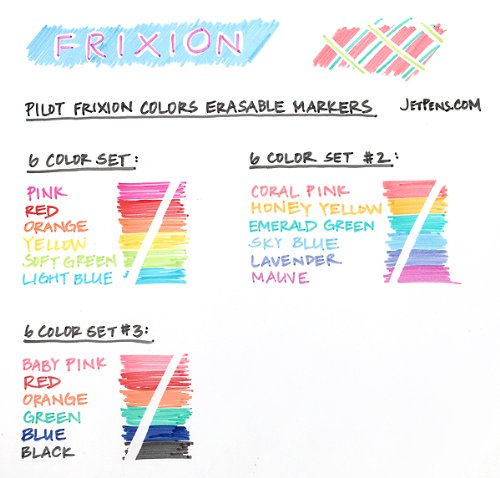 FRIXION
PILOT FRIXION COLORS ERASABLE MARKERS
JETPENS.COM
6 COLOR SET:
PINK
RED
ORANGE
YELLOW
SOFT GREEN
LIGHT BLUE
6 COLOR SET #2:
CORAL PINK
HONEY YELLOW
EMERALD GREEN
SKY BLUE
LAVENDER
MAUVE
6 COLOR SET #3:
BABY PINK
RED
ORANGE
GREEN
BLUE
BLACK